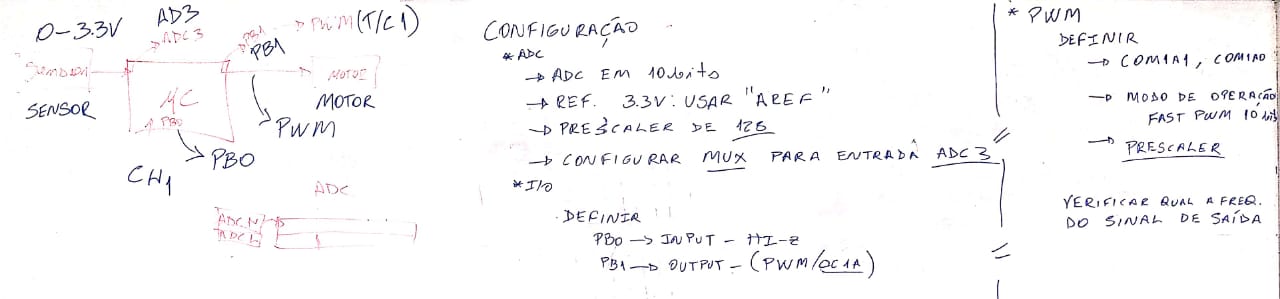 0-3.3V
AD3
ADC3
PB1
PB1
→ PWM (T/C1)
SENSOR
MC
PB0
MOTOR
SENSOR
MOTOR
PWM
PB0
CH1
ADC
ADCH
ADCL
CONFIGURAÇÃO
* ADC
→ ADC EM 10bits
→ REF. 3.3V: USAR "AREF"
→ PRESCALER DE 128
→ CONFIGURAR MUX PARA ENTRADA ADC3
* I/O
DEFINIR
PB0 → INPUT - HI-Z
PB1 → OUTPUT - (PWM/OC1A)
* PWM
DEFINIR
→ COM1A1, COM1A0
→ MODO DE OPERAÇÃO
FAST PWM 10 bits
→ PRESCALER
VERIFICAR QUAL A FREQ.
DO SINAL DE SAÍDA